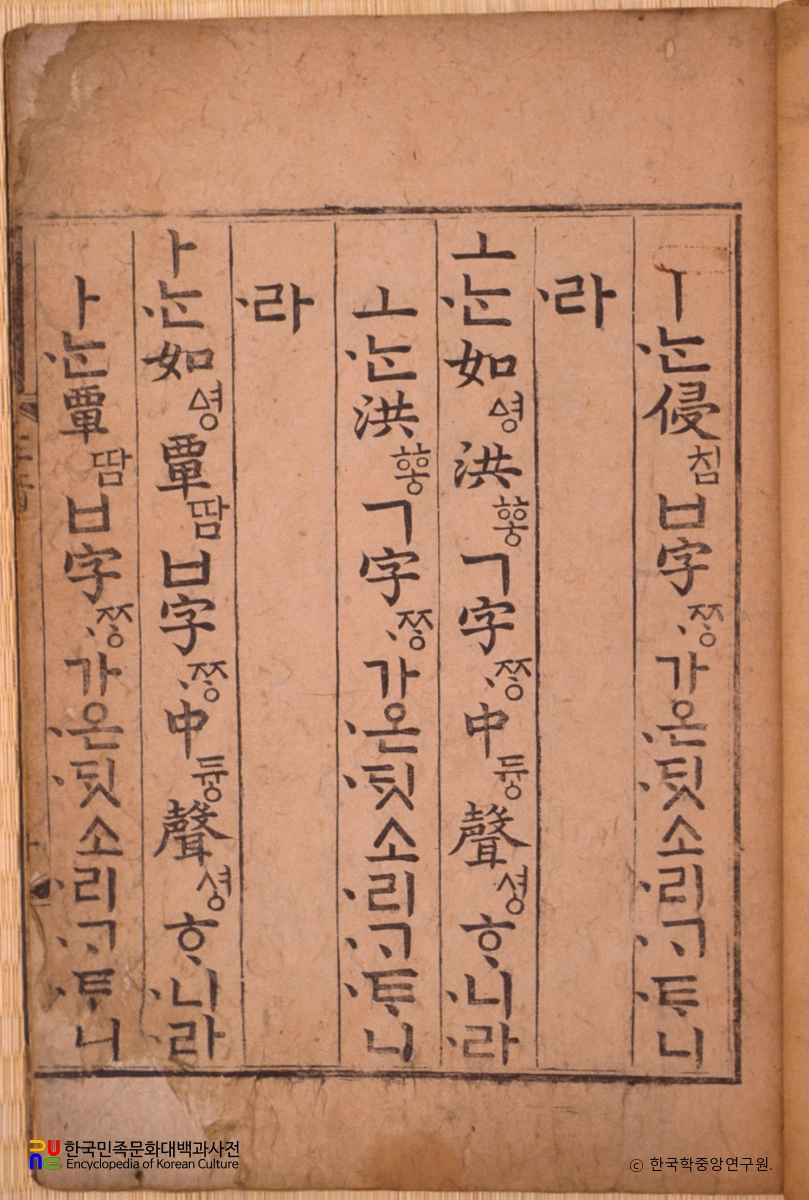 ㅣ·는侵침ㅂ字·ᄍᆞᆼ가·온·딧소·리·ᄀᆞ·ᄐᆞ니
·라
ㅗ·는如ᅀᅧᆼ洪ᅘᅩᆼㄱ字·ᄍᆞᆼ中듀ᇰ聲셔ᇰᄒᆞ·니·라
ㅗ·는洪ᅘᅩᆼㄱ字·ᄍᆞᆼ가·온·딧소·리·ᄀᆞ·ᄐᆞ니
·라
ㅏ·는如ᅀᅧᆼ覃땀ㅂ字·ᄍᆞᆼ中듀ᇰ聲셔ᇰᄒᆞ·니·라
ㅏ·는覃땀ㅂ字·ᄍᆞᆼ가·온·딧소·리·ᄀᆞ·ᄐᆞ니
한국민족문화대백과사전
Encyclopedia of Korean Culture
ⓒ 한국학중앙연구원.